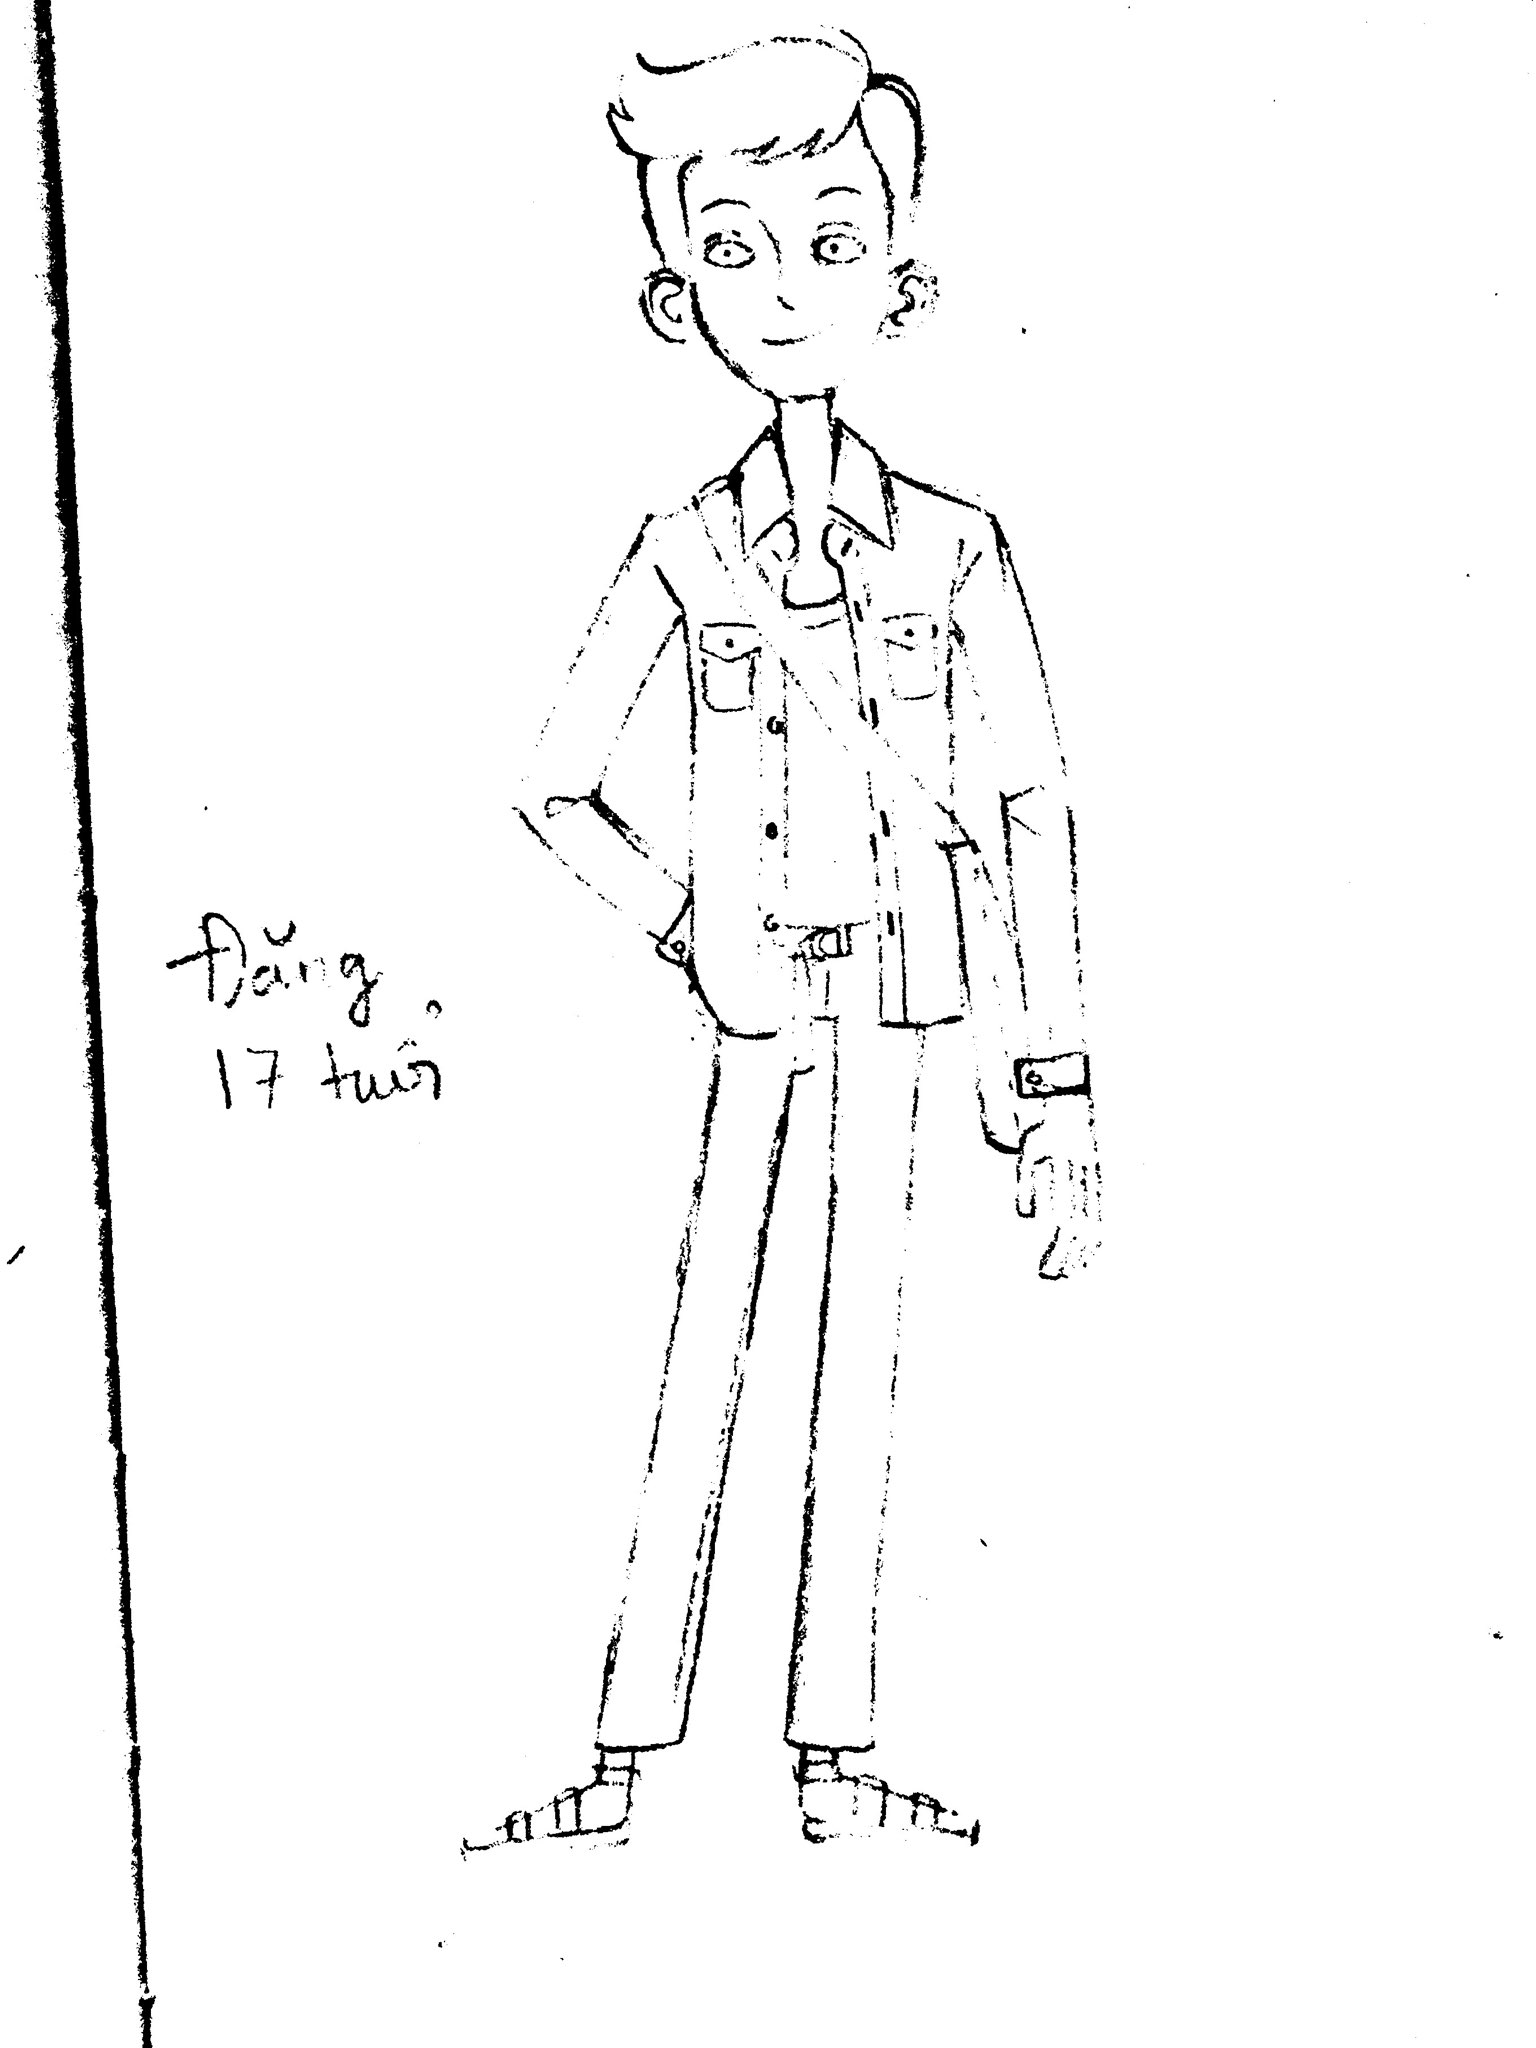 Đăng
17 tuổi